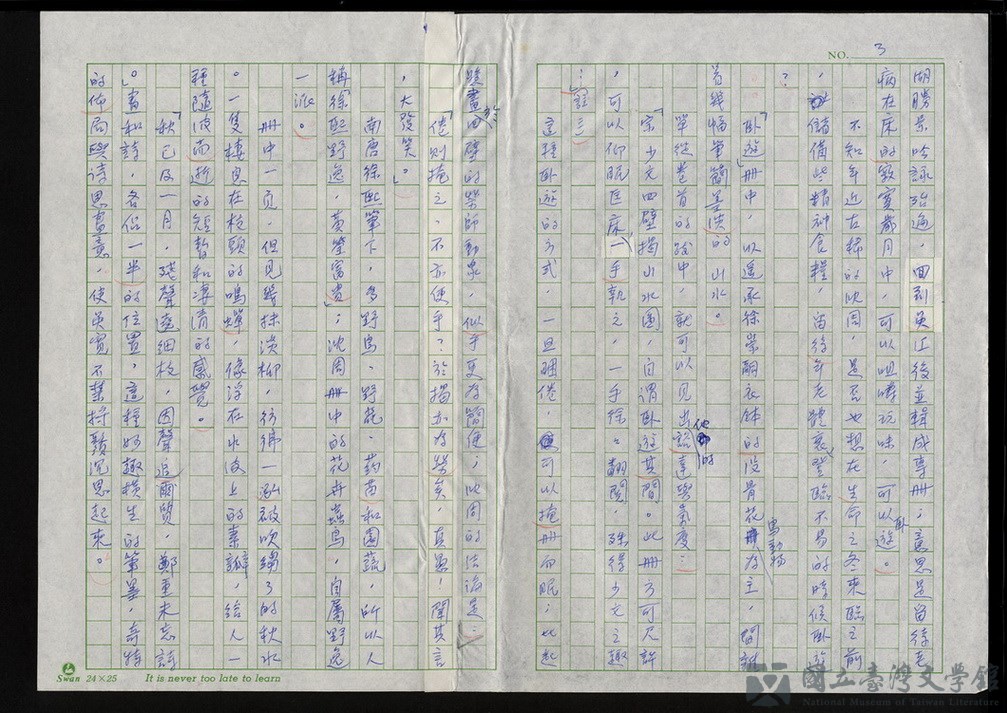 NO. 3
湖勝景吟詠殆遍，回到吳江後並輯成專冊，意思是留待老
病在床的寂寞歲月中，可以咀嚼玩味，可以臥遊。
不知年近古稀的沈周，是否也想在生命之冬來臨之前
，儲備些精神食糧，當待年老體衰登臨不易的時候臥遊
？
「臥遊」冊中，以遙承徐崇嗣衣鉢的沒骨花鳥動物為主，間
着幾幅筆簡墨淡的山水。
單從卷首的跋中，就可以見出他的詼諧達與氣度：
「宗少文四壁揭山水圖，自謂臥遊其間。此冊方可尺許
，可以仰眠匡床，一手執之，一手徐徐翻閱，殊得少文之趣
…」(註三)
這種臥遊的方式，一旦睏倦，可以掩冊而眠；比起
於四壁的榮師動眾，似乎更為簡便；沈周的結論是：
「倦則掩之，不亦便乎？於揭亦為勞矣，真愚，聞其言
，大發笑。」
南唐徐熙筆下，多野鳥、野花、葯苗和園蔬，所以人
稱「徐熙野逸，黃筌富貴」；沈周冊中的花卉蟲鳥，自屬野逸
一派。
冊中一頁，但見幾抹淡柳，彷彿一泓被吹縐了的秋水
。一隻棲息在枝頭的鳴蟬，像浮在水波上的素瓣，給人一
種隨波而逝的短暫和淒清的感覺。
「秋已及一月，殘聲遶細枝，因聲追爾質，鄭重未忘詩
。」畫和詩，各佔一半的位置，這種妙趣橫生的筆墨，奇特
的佈局與詩思畫意，使吳寬不禁捋鬚沉思起來。
Swan 24×25 It is never too late to learn
國立臺灣文學館
National Museum of Taiwan Literature